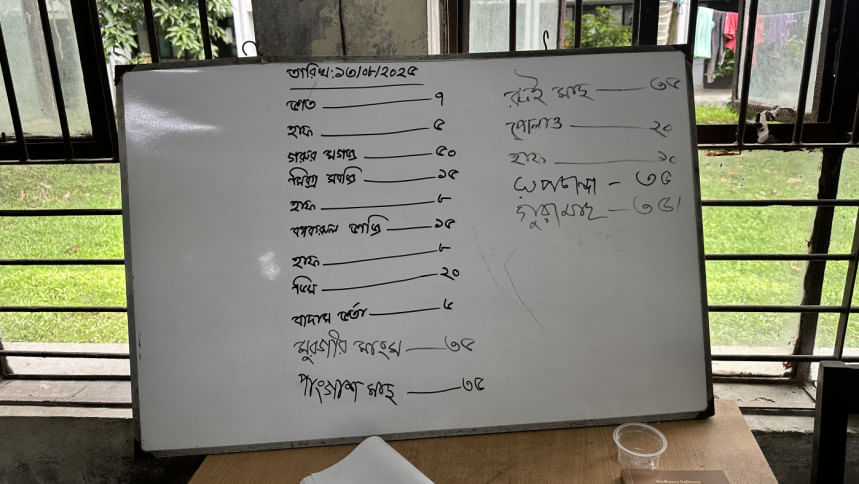 তারিখ: ১৩/০৮/২০২৫
ভাত — ৭
হাফ — ৫
গরুর মগজ — ৫০
মিক্স সবজি — ১৫
হাফ — ৮
হাফ — ৮
ডিম — ২০
বাদাম ভর্তা — ৫
মুরগীর মাংস — ৩৫
পাংগাশ মাছ — ৩৫
রুই মাছ — ৩৫
পোলাও — ২০
হাফ — ১০
রূপচান্দা - ৩৫
গুরামাছ - ৩৫